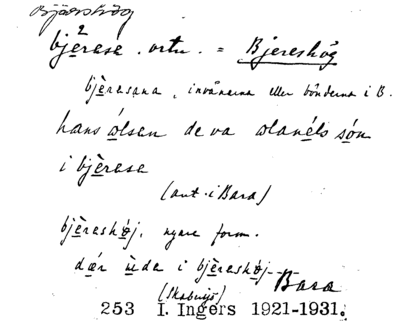 Bjäreshög
bjèrase. ortn. = Bjereshög
bjèrasana, invånarna eller bönderna i B.
hans ólsen de va olanéls són
i bjèrase
(ant. i Bara)
bjèreshøj, nyare form.
dær ùde i bjèreshøj
(Skabersjö) Bara
253 I. Ingers 1921-1931.